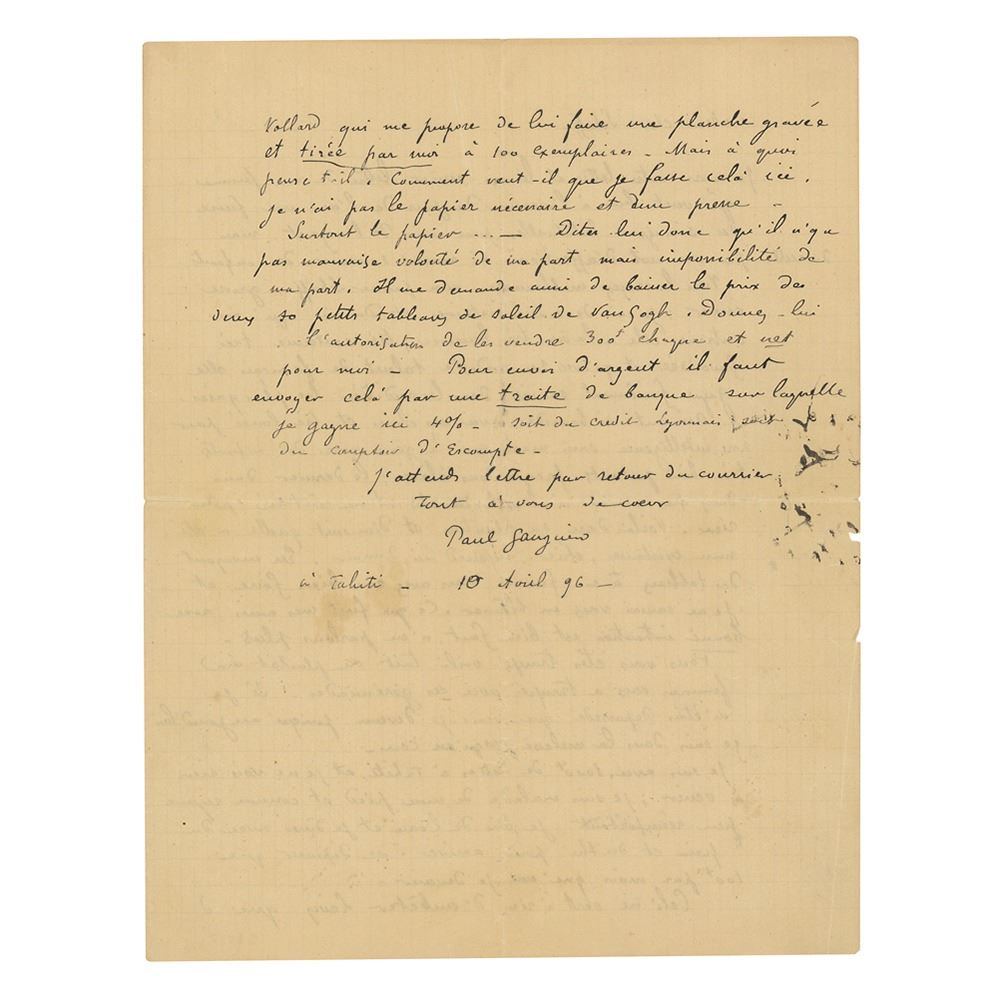 Vollard qui me propose de lui faire une planche gravée
et tirée par moi à 100 exemplaires - Mais à quoi
pense t-il. Comment veut-il que je fasse celà ici.
je n'ai pas le papier nécessaire et une presse -
Surtout le papier ... — Dites lui donc qu'il n'y a
pas mauvaise volonté de ma part mais impossibilité de
ma part. Il me demande aussi de baisser le prix des
deux petits tableaux de soleil de Van Gogh. Donnez-lui
l'autorisation de les vendre 300f chaque et net
pour moi - Pour envoi d'argent il faut
envoyer celà par une traite de banque sur laquelle
je gagne ici 4% - soit du credit Lyonnais soit
du comptoir d'Escompte -
J'attends lettre par retour du courrier
Tout à vous de coeur
Paul Gauguin
à Tahiti - 10 Avril 96 -